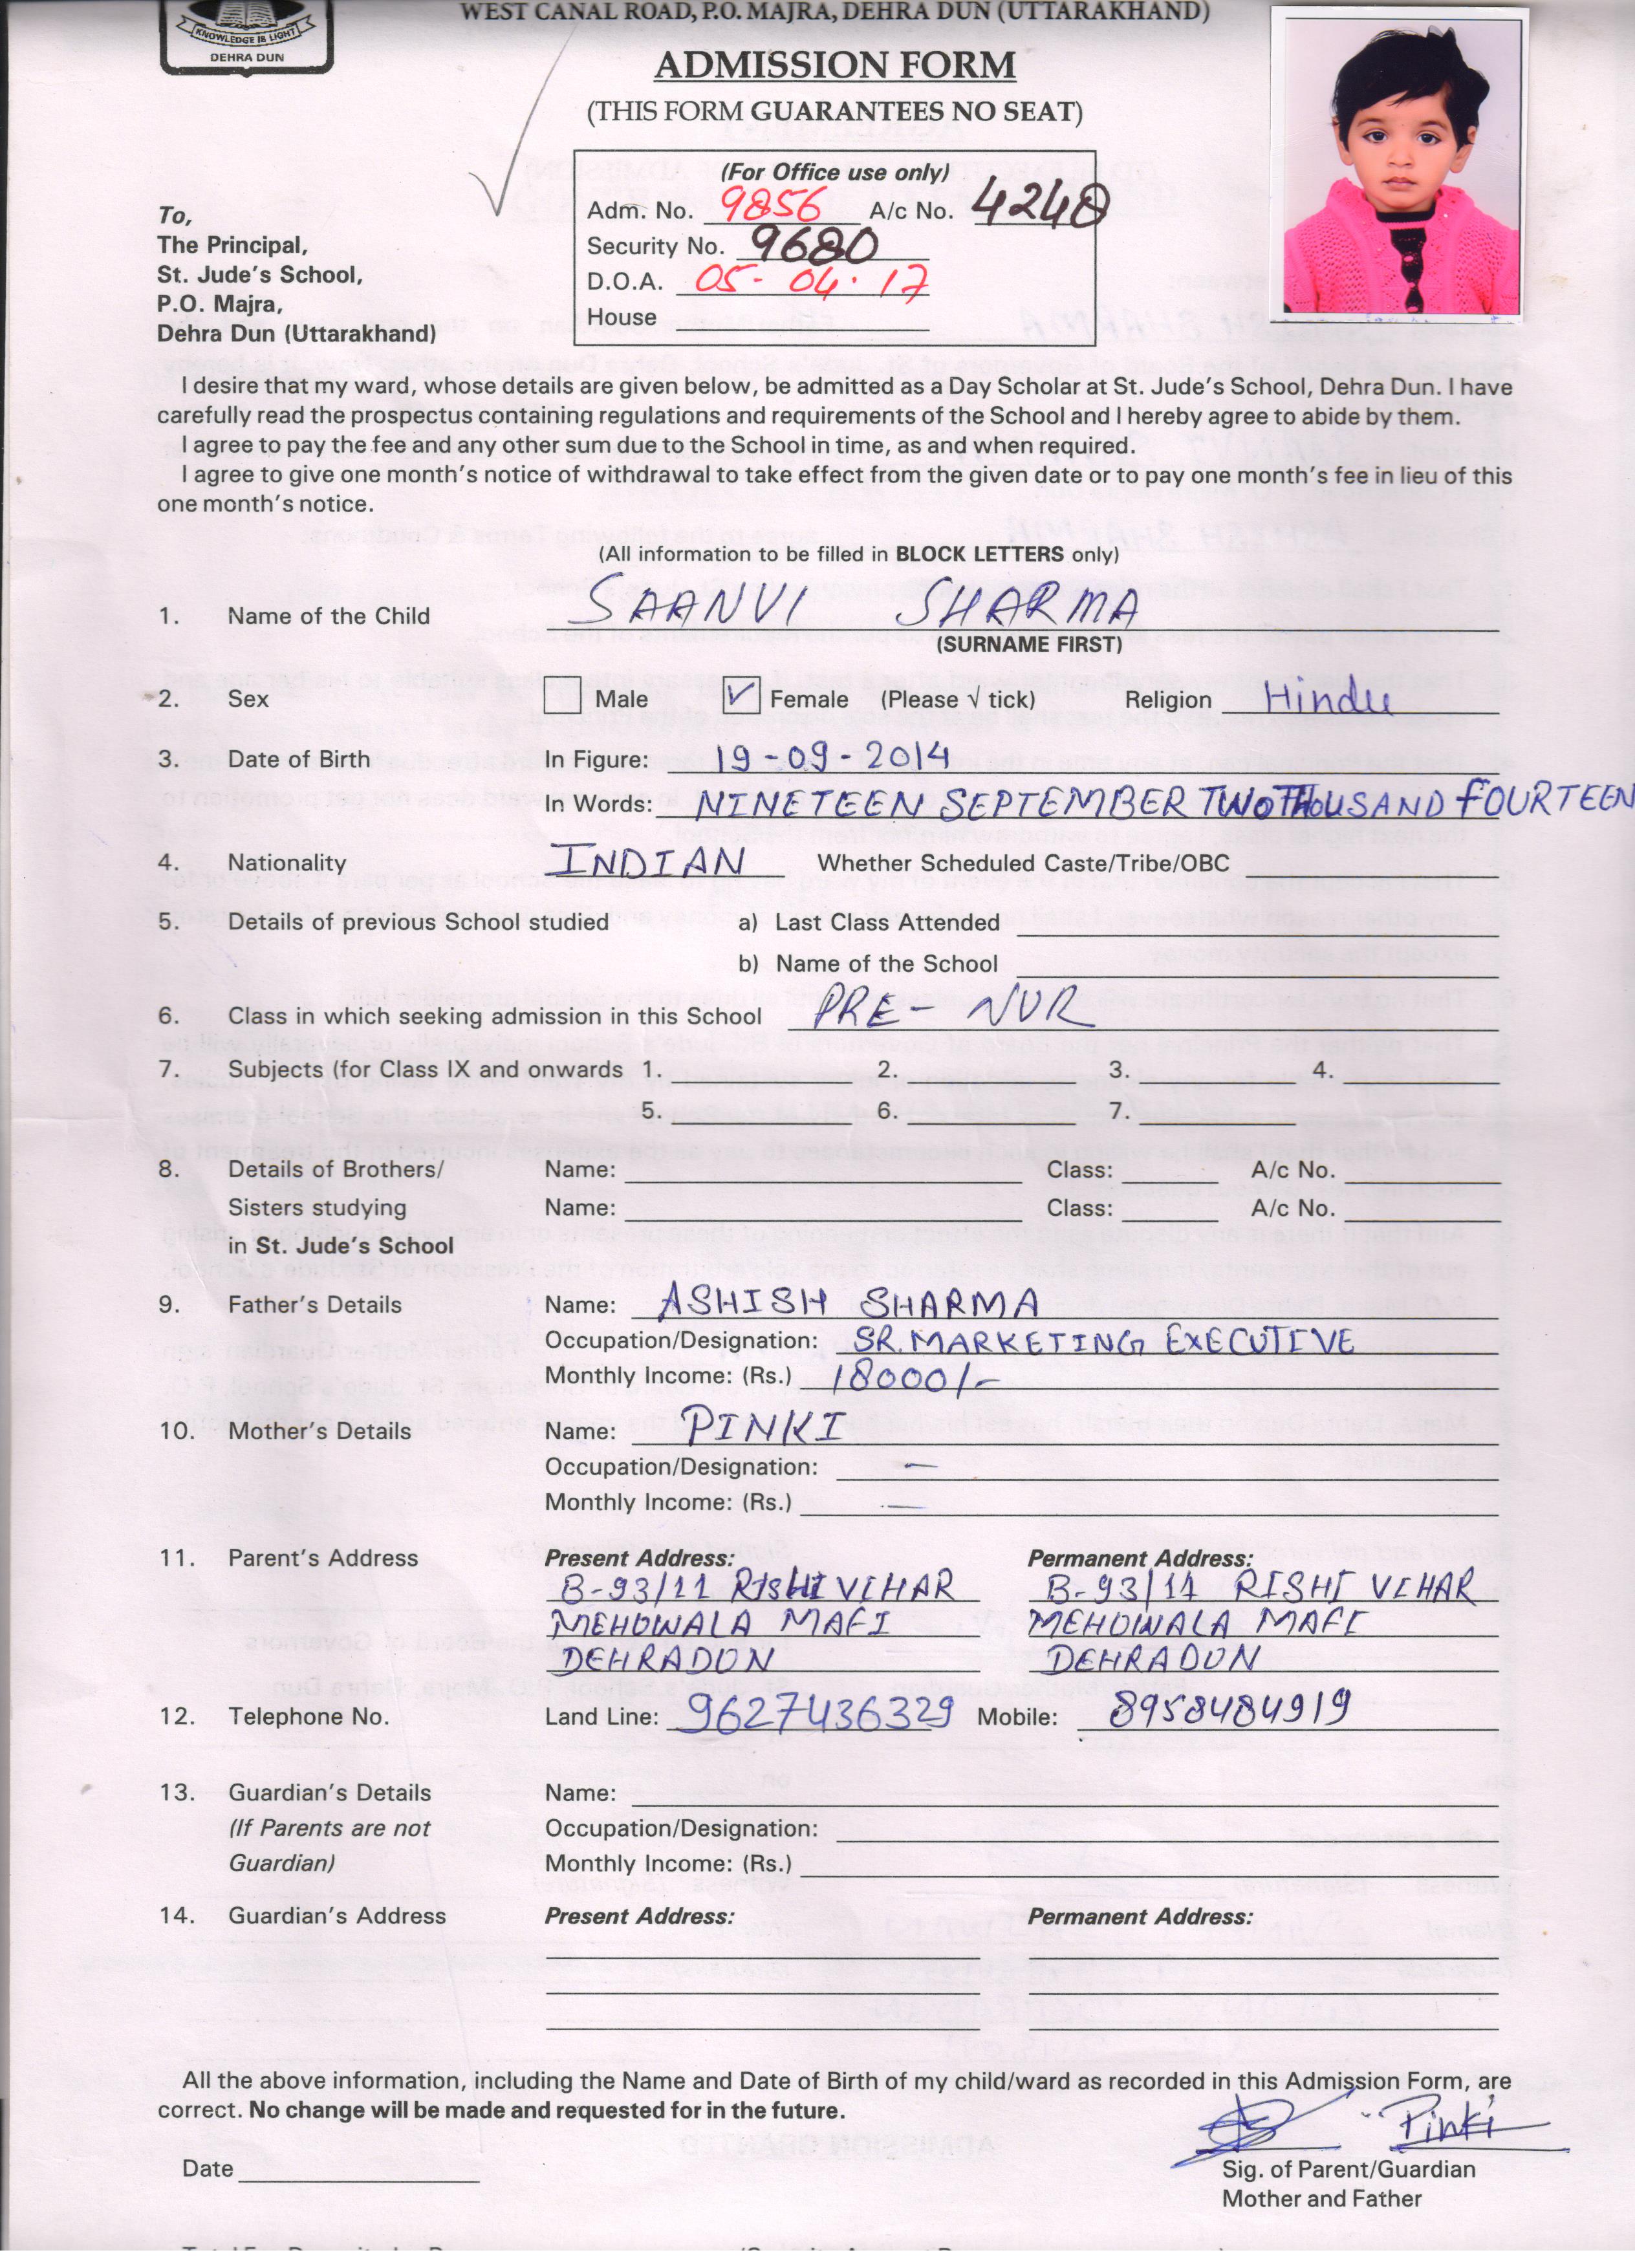 KNOWLEDGE IS LIGHT
DEHRA DUN
WEST CANAL ROAD, P.O. MAJRA, DEHRA DUN (UTTARAKHAND)
ADMISSION FORM
(THIS FORM GUARANTEES NO SEAT)
(For Office use only)
Adm. No. 9856 A/c No. 4248
Security No. 9680
D.O.A. 05-04-17
House
To,
The Principal,
St. Jude's School,
P.O. Majra,
Dehra Dun (Uttarakhand)
I desire that my ward, whose details are given below, be admitted as a Day Scholar at St. Jude's School, Dehra Dun. I have
carefully read the prospectus containing regulations and requirements of the School and I hereby agree to abide by them.
I agree to pay the fee and any other sum due to the School in time, as and when required.
I agree to give one month's notice of withdrawal to take effect from the given date or to pay one month's fee in lieu of this
one month's notice.
(All information to be filled in BLOCK LETTERS only)
1. Name of the Child SAANVI SHARMA
(SURNAME FIRST)
2. Sex Male ✓ Female (Please √ tick) Religion Hindu
3. Date of Birth In Figure: 19-09-2014
In Words: NINETEEN SEPTEMBER TWO THOUSAND FOURTEEN
4. Nationality INDIAN Whether Scheduled Caste/Tribe/OBC
5. Details of previous School studied a) Last Class Attended
b) Name of the School
6. Class in which seeking admission in this School PRE- NUR
7. Subjects (for Class IX and onwards 1. 2. 3. 4.
5. 6. 7.
8. Details of Brothers/ Name: Class: A/c No.
Sisters studying Name: Class: A/c No.
in St. Jude's School
9. Father's Details Name: ASHISH SHARMA
Occupation/Designation: SR. MARKETING EXECUTIVE
Monthly Income: (Rs.) 18000/-
10. Mother's Details Name: PINKI
Occupation/Designation: —
Monthly Income: (Rs.) —
11. Parent's Address Present Address: Permanent Address:
B-93/11 RISHI VIHAR B-93/11 RISHI VIHAR
MEHOWALA MAFI MEHOWALA MAFI
DEHRADUN DEHRADUN
12. Telephone No. Land Line: 9627436329 Mobile: 8958484919
13. Guardian's Details Name:
(If Parents are not Occupation/Designation:
Guardian) Monthly Income: (Rs.)
14. Guardian's Address Present Address: Permanent Address:
All the above information, including the Name and Date of Birth of my child/ward as recorded in this Admission Form, are
correct. No change will be made and requested for in the future.
Pinki
Date Sig. of Parent/Guardian
Mother and Father